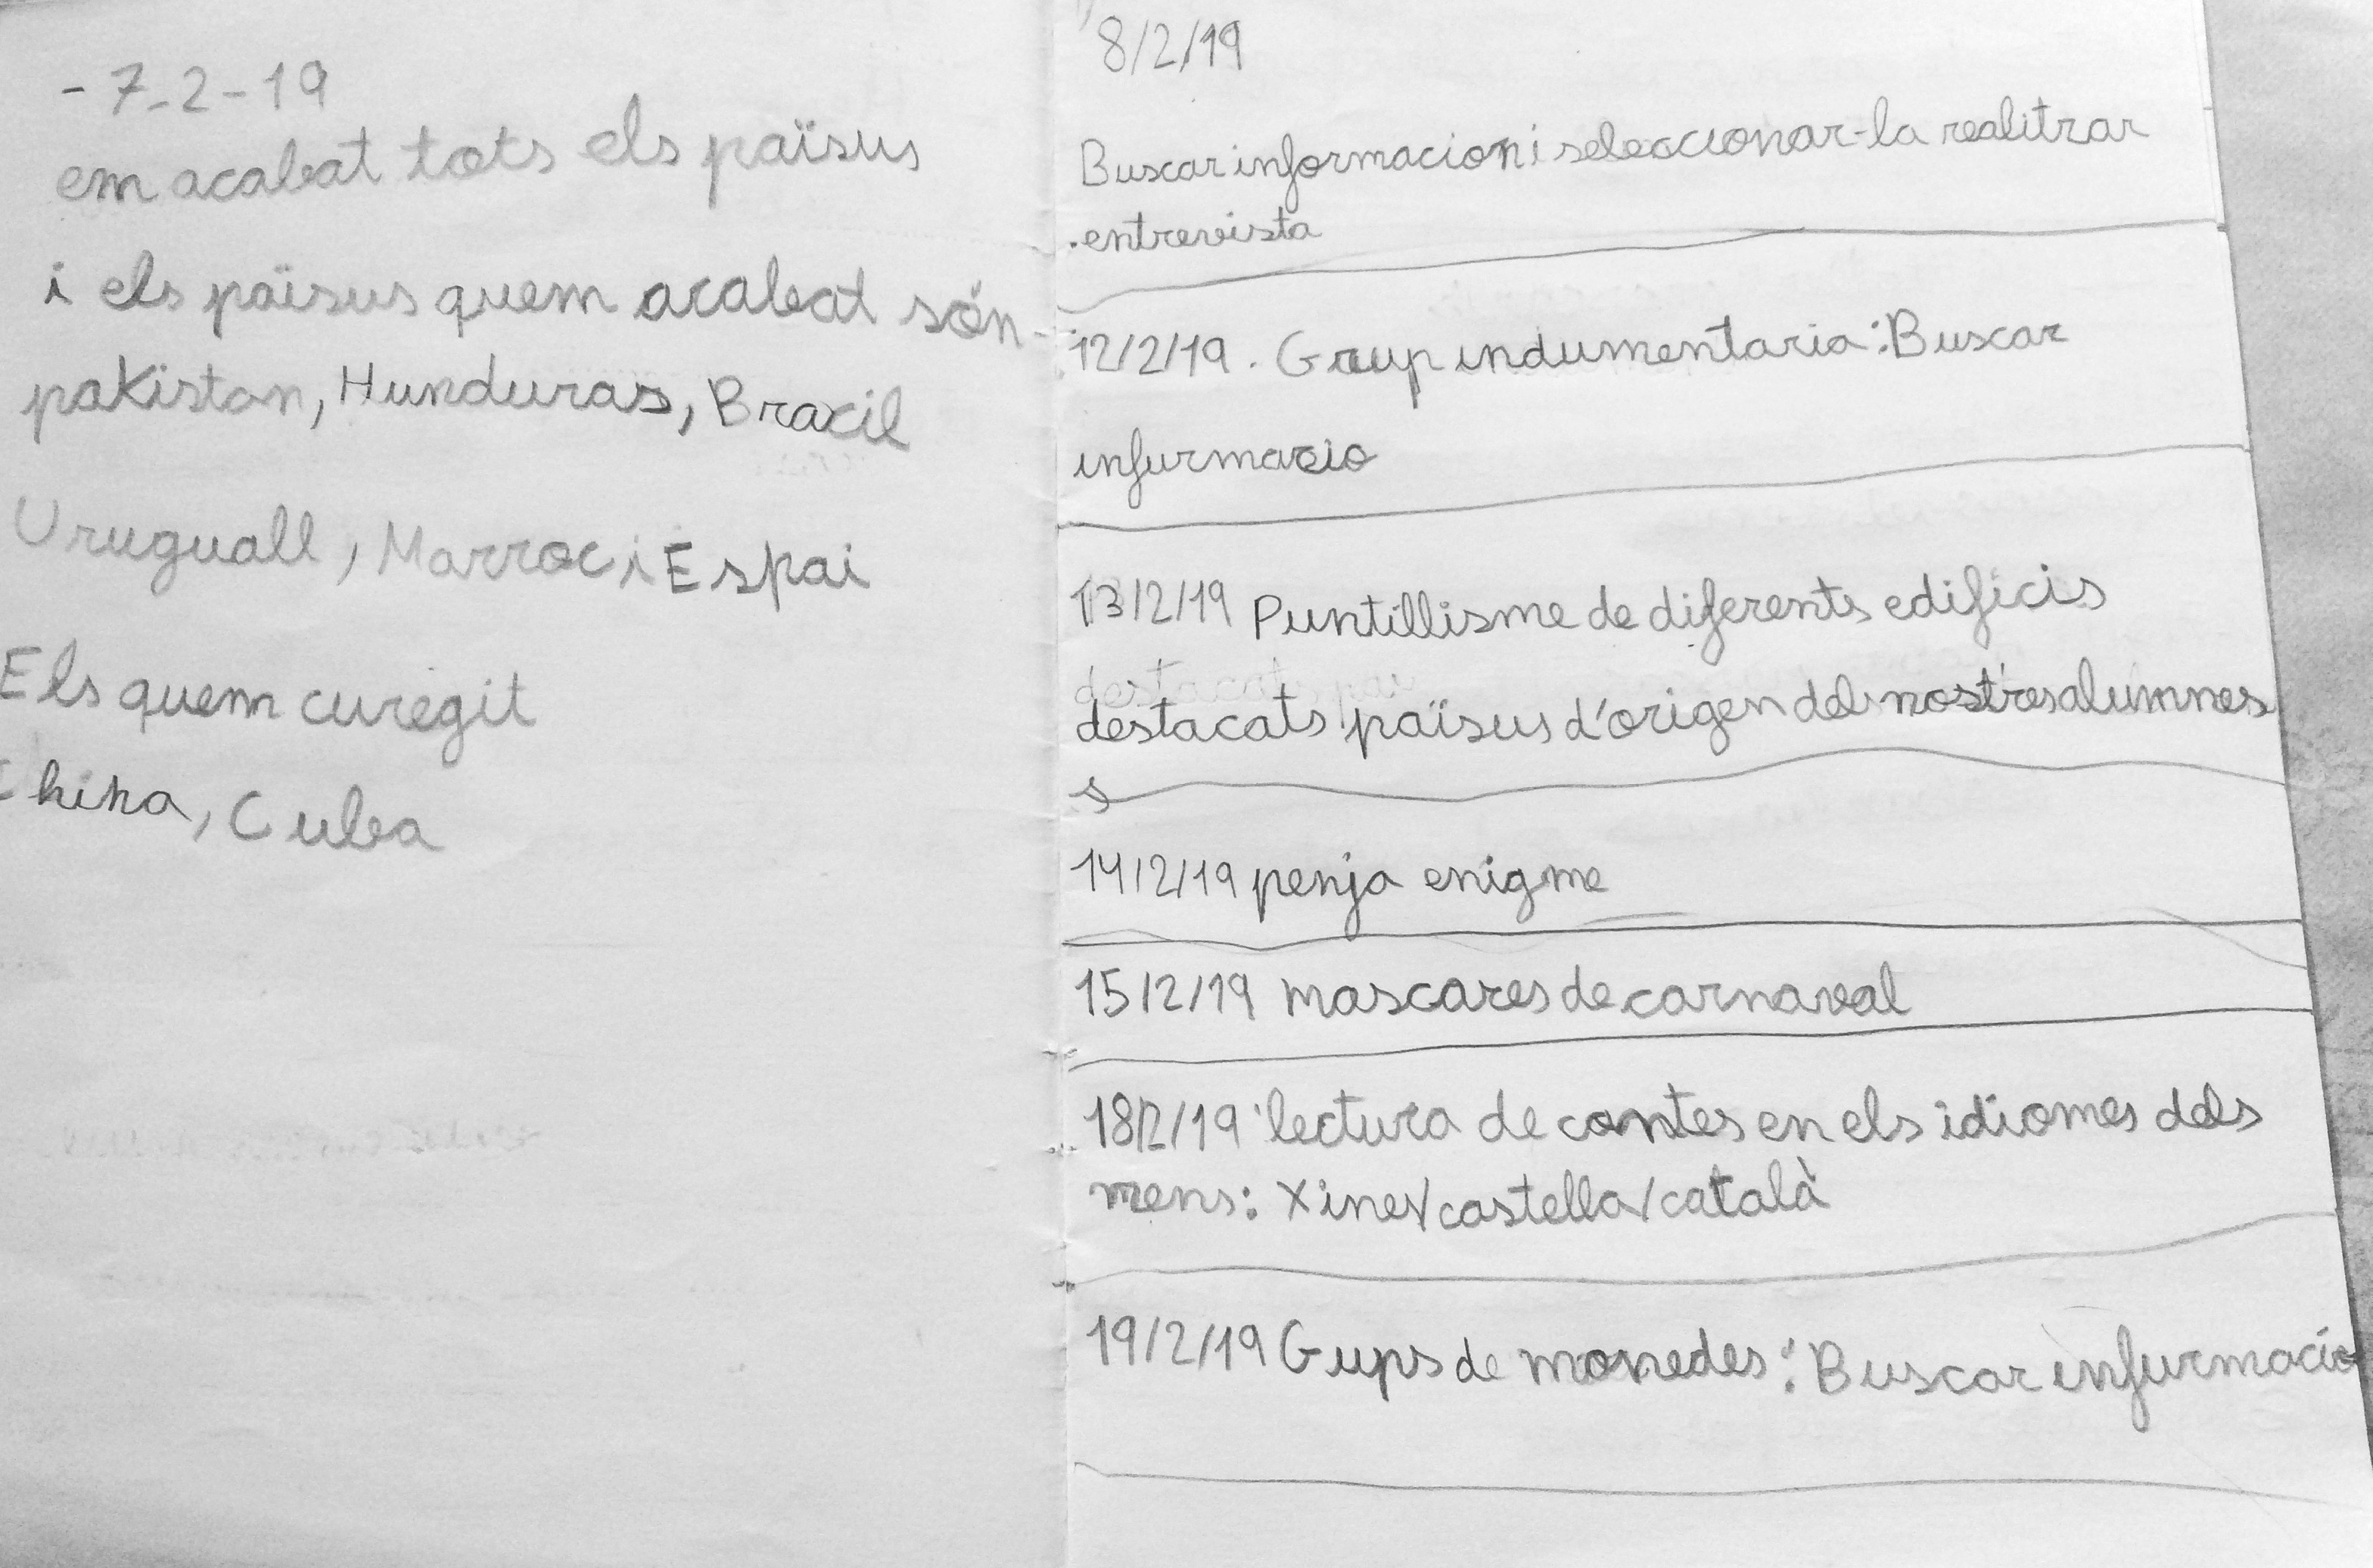 - 7-2-19
em acabat tots els païsus
i els païsus quem acabat són
pakistan, Hunduras, Bracil
Uruguall, Marroc i Espai
Els quem curegit
China, Cuba
8/2/19
Buscar informacion i seleccionar-la realitzar
.entrevista
12/2/19. Grup indumentaria: Buscar
infurmacio
13/2/19 Puntillisme de diferents edificis
destacats païsus d'origen dels nostres alumnes
14/2/19 penja enigme
15/2/19 mascares de carnaval
18/2/19 lectura de contes en els idiomes dels
nens: Xines/castella/català
19/2/19 Gups de monedes: Buscar infurmacio